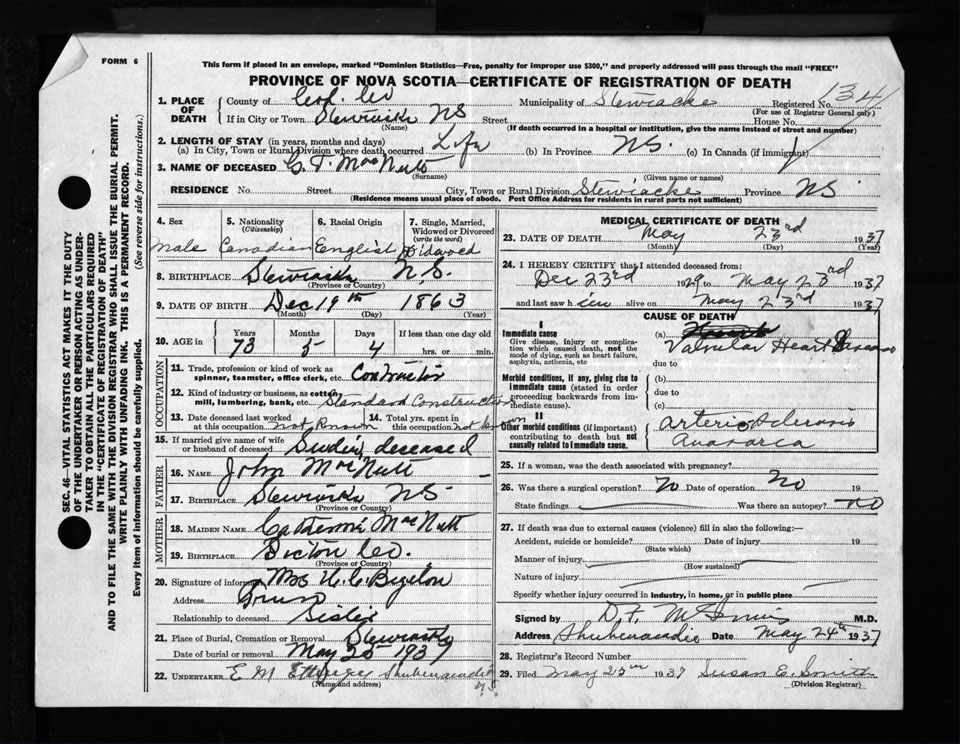 FORM 6
This form if placed in an envelope, marked "Dominion Statistics—Free, penalty for improper use $300," and properly addressed will pass through the mail "FREE"
PROVINCE OF NOVA SCOTIA—CERTIFICATE OF REGISTRATION OF DEATH
1. PLACE OF DEATH County of Col. Co Municipality of Stewiacke Registered No. 134
(For use of Registrar General only)
If in City or Town Stewiacke NS Street House No.
(Name) (If death occurred in a hospital or institution, give the name instead of street and number)
2. LENGTH OF STAY (in years, months and days)
(a) In City, Town or Rural Division where death occurred Life (b) In Province NS. (c) In Canada (if immigrant)
3. NAME OF DECEASED G. F. MacNutt
(Surname) (Given name or names)
RESIDENCE No Street City, Town or Rural Division Stewiacke Province NS
(Residence means usual place of abode. Post Office Address for residents in rural parts not sufficient)
4. Sex 5. Nationality (Citizenship) 6. Racial Origin 7. Single, Married, Widowed or Divorced (write the word)
Male Canadian English Widowed
8. BIRTHPLACE Stewiacke N.S.
(Province or Country)
9. DATE OF BIRTH Dec 19th 1863
(Month) (Day) (Year)
10. AGE IN Years Months Days If less than one day old
73 5 4 hrs. or min.
OCCUPATION
11. Trade, profession or kind of work as spinner, teamster, office clerk, etc. Contractor
12. Kind of industry or business, as cotton mill, lumbering, bank, etc. Standard Construction
13. Date deceased last worked at this occupation not Known 14. Total yrs. spent in this occupation not known
15. If married give name of wife or husband of deceased deceased
FATHER
16. NAME John MacNutt
17. BIRTHPLACE Stewiacke NS
(Province or Country)
MOTHER
18. MAIDEN NAME Catherine MacNutt
19. BIRTHPLACE Pictou Co.
(Province or Country)
20. Signature of informant Mrs H. C. Bigelow
Address Truro
Relationship to deceased Sister
21. Place of Burial, Cremation or Removal Stewiacke
Date of burial or removal May 25 1937
22. UNDERTAKER E M Ettinger Shubenacadie N.S.
(Name and address)
MEDICAL CERTIFICATE OF DEATH
23. DATE OF DEATH May 23rd 1937
(Month) (Day) (Year)
24. I HEREBY CERTIFY that I attended deceased from:
Dec 23rd 1929 to May 23rd 1937
and last saw h im alive on May 23rd 1937
CAUSE OF DEATH
I
Immediate cause
Give disease, injury or complication which caused death, not the mode of dying, such as heart failure, asphyxia, asthenia, etc
(a) Valvular Heart Disease
due to
Morbid conditions, if any, giving rise to immediate cause (stated in order proceeding backwards from immediate cause).
(b)
due to
(c)
II
Other morbid conditions (if important) contributing to death but not causally related to Immediate cause.
Arterio Sclerosis
Anasarca
25. If a woman, was the death associated with pregnancy?
26. Was there a surgical operation? No Date of operation No 19
State findings Was there an autopsy? no
27. If death was due to external causes (violence) fill in also the following:—
Accident, suicide or homicide? Date of injury 19
(State which)
Manner of injury
(How sustained)
Nature of injury
Specify whether injury occurred in Industry, in home, or in public place
Signed by D. F. McInnis M.D.
Address Shubenacadie Date May 24th 1937
28. Registrar's Record Number
29. Filed May 1937 Susan E. Smith
(Division Registrar)
SEC. 46—VITAL STATISTICS ACT MAKES IT THE DUTY
OF THE UNDERTAKER OR PERSON ACTING AS UNDER-
TAKER TO OBTAIN ALL THE PARTICULARS REQUIRED
IN THE "CERTIFICATE OF REGISTRATION OF DEATH"
AND TO FILE THE SAME WITH THE DIVISION REGISTRAR WHO SHALL ISSUE THE BURIAL PERMIT.
WRITE PLAINLY WITH UNFADING INK. THIS IS A PERMANENT RECORD.
Every item of information should be carefully supplied. (See reverse side for instructions.)